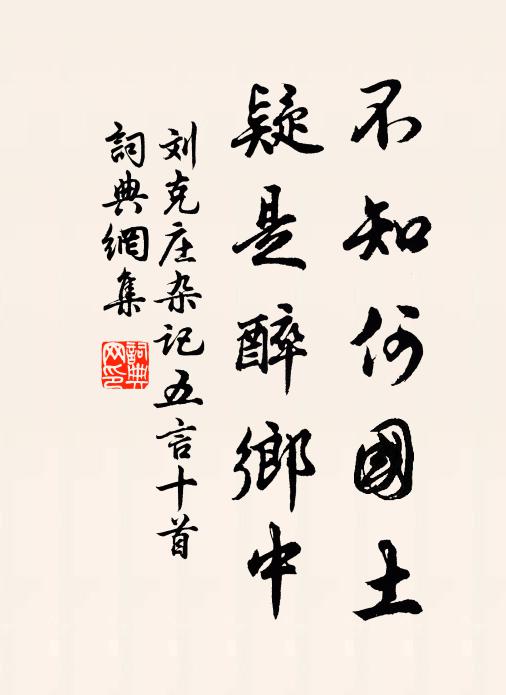 不知何國土
疑是醉鄉中
刘克庄杂记五言十首
詞典網集
詞典网印